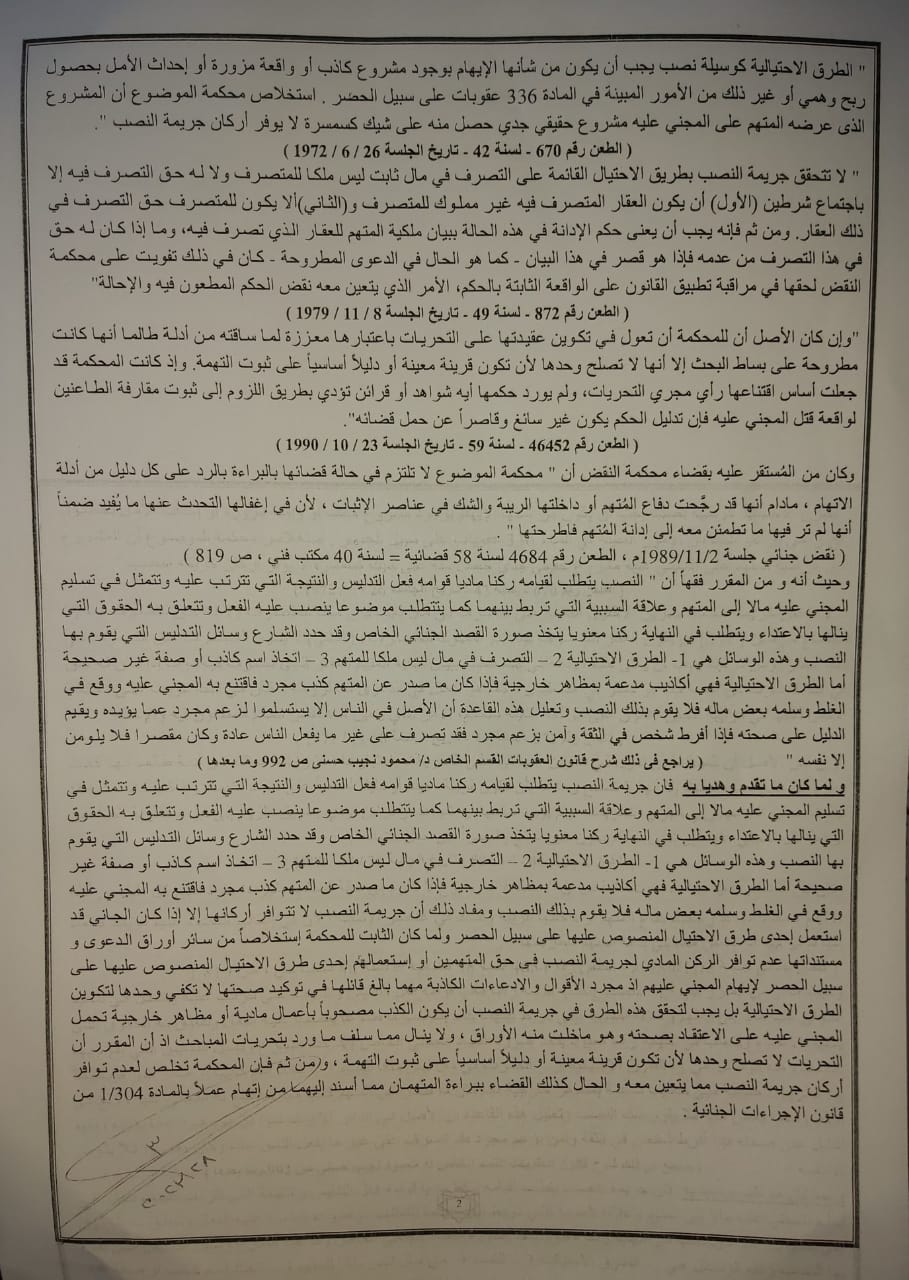 " الطرق الاحتيالية كوسيلة نصب يجب أن يكون من شأنها الإيهام بوجود مشروع كاذب أو واقعة مزورة أو إحداث الأمل بحصول
ربح وهمي أو غير ذلك من الأمور المبينة في المادة 336 عقوبات على سبيل الحصر . استخلاص محكمة الموضوع أن المشروع
الذى عرضه المتهم على المجني عليه مشروع حقيقي جدي حصل منه على شيك كسمسرة لا يوفر أركان جريمة النصب ".
( الطعن رقم 670 - لسنة 42 - تاريخ الجلسة 26 / 6 / 1972 )
" لا تتحقق جريمة النصب بطريق الاحتيال القائمة على التصرف في مال ثابت ليس ملكا للمتصرف ولا له حق التصرف فيه إلا
باجتماع شرطين (الأول) أن يكون العقار المتصرف فيه غير مملوك للمتصرف و(الثاني)ألا يكون للمتصرف حق التصرف في
ذلك العقار. ومن ثم فإنه يجب أن يعنى حكم الإدانة في هذه الحالة ببيان ملكية المتهم للعقار الذي تصرف فيه، وما إذا كان له حق
في هذا التصرف من عدمه فإذا هو قصر في هذا البيان - كما هو الحال في الدعوى المطروحة - كان في ذلك تفويت على محكمة
النقض لحقها في مراقبة تطبيق القانون على الواقعة الثابتة بالحكم، الأمر الذي يتعين معه نقض الحكم المطعون فيه والإحالة"
( الطعن رقم 872 - لسنة 49 - تاريخ الجلسة 8 / 11 / 1979 )
"وإن كان الأصل أن للمحكمة أن تعول في تكوين عقيدتها على التحريات باعتبارها معززة لما ساقته من أدلة طالما أنها كانت
مطروحة على بساط البحث إلا أنها لا تصلح وحدها لأن تكون قرينة معينة أو دليلاً أساسياً على ثبوت التهمة. وإذ كانت المحكمة قد
جعلت أساس اقتناعها رأي مجري التحريات، ولم يورد حكمها أيه شواهد أو قرائن تؤدي بطريق اللزوم إلى ثبوت مقارفة الطاعنين
لواقعة قتل المجني عليه فإن تدليل الحكم يكون غير سائغ وقاصراً عن حمل قضائه".
( الطعن رقم 46452 - لسنة 59 - تاريخ الجلسة 23 / 10 / 1990 )
وكان من المُستقر عليه بقضاء محكمة النقض أن " محكمة الموضوع لا تلتزم في حالة قضائها بالبراءة بالرد على كل دليل من أدلة
الاتهام ، مادام أنها قد رجَّحت دفاع المُتهم أو داخلتها الريبة والشك في عناصر الإثبات ، لأن في إغفالها التحدث عنها ما يُفيد ضمناً
أنها لم تر فيها ما تطمئن معه إلى إدانة المُتهم فاطرحتها " .
( نقض جنائي جلسة 1989/11/2م ، الطعن رقم 4684 لسنة 58 قضائية = لسنة 40 مكتب فني ، ص 819 )
وحيث أنه و من المقرر فقهاً أن " النصب يتطلب لقيامه ركنا ماديا قوامه فعل التدليس والنتيجة التي تترتب عليه وتتمثل في تسليم
المجني عليه مالا إلى المتهم وعلاقة السببية التي تربط بينهما كما يتتطلب موضوعا ينصب عليه الفعل وتتعلق به الحقوق التي
ينالها بالاعتداء ويتطلب في النهاية ركنا معنويا يتخذ صورة القصد الجنائي الخاص وقد حدد الشارع وسائل التدليس التي يقوم بها
النصب وهذه الوسائل هي 1- الطرق الاحتيالية 2 – التصرف في مال ليس ملكا للمتهم 3 – اتخاذ اسم كاذب أو صفة غير صحيحة
أما الطرق الاحتيالية فهي أكاذيب مدعمة بمظاهر خارجية فإذا كان ما صدر عن المتهم كذب مجرد فاقتنع به المجني عليه ووقع في
الغلط وسلمه بعض ماله فلا يقوم بذلك النصب وتعليل هذه القاعدة أن الأصل في الناس إلا يستسلموا لزعم مجرد عما يؤيده ويقيم
الدليل على صحته فإذا أفرط شخص في الثقة وآمن بزعم مجرد فقد تصرف على غير ما يفعل الناس عادة وكان مقصرا فلا يلومن
إلا نفسه " ( يراجع فى ذلك شرح قانون العقوبات القسم الخاص د/ محمود نجيب حسنى ص 992 وما بعدها )
و لما كان ما تقدم وهديا به فان جريمة النصب يتطلب لقيامه ركنا ماديا قوامه فعل التدليس والنتيجة التي تترتب عليه وتتمثل في
تسليم المجني عليه مالا إلى المتهم وعلاقة السببية التي تربط بينهما كما يتتطلب موضوعا ينصب عليه الفعل وتتعلق به الحقوق
التي ينالها بالاعتداء ويتطلب في النهاية ركنا معنويا يتخذ صورة القصد الجنائي الخاص وقد حدد الشارع وسائل التدليس التي يقوم
بها النصب وهذه الوسائل هي 1- الطرق الاحتيالية 2 – التصرف في مال ليس ملكا للمتهم 3 – اتخاذ اسم كاذب أو صفة غير
صحيحة أما الطرق الاحتيالية فهي أكاذيب مدعمة بمظاهر خارجية فإذا كان ما صدر عن المتهم كذب مجرد فاقتنع به المجني عليه
ووقع في الغلط وسلمه بعض ماله فلا يقوم بذلك النصب ومفاد ذلك أن جريمة النصب لا تتوافر أركانها إلا إذا كان الجاني قد
استعمل إحدى طرق الاحتيال المنصوص عليها على سبيل الحصر ولما كان الثابت للمحكمة إستخلاصاً من سائر أوراق الدعوى و
مستنداتها عدم توافر الركن المادي لجريمة النصب في حق المتهمين أو إستعمالهم إحدى طرق الاحتيال المنصوص عليها على
سبيل الحصر لإيهام المجني عليهم اذ مجرد الأقوال والادعاءات الكاذبة مهما بالغ قائلها في توكيد صحتها لا تكفي وحدها لتكوين
الطرق الاحتيالية بل يجب لتحقق هذه الطرق في جريمة النصب أن يكون الكذب مصحوباً بأعمال مادية أو مظاهر خارجية تحمل
المجني عليه على الاعتقاد بصحته وهو ماخلت منه الأوراق ، ولا ينال مما سلف ما ورد بتحريات المباحث اذ أن المقرر أن
التحريات لا تصلح وحدها لأن تكون قرينة معينة أو دليلاً أساسياً على ثبوت التهمة ، ومن ثم فإن المحكمة تخلص لعدم توافر
أركان جريمة النصب مما يتعين معه و الحال كذلك القضاء ببراءة المتهمان مما أسند إليهما من إتهام عملاً بالمادة 1/304 من
قانون الإجراءات الجنائية .
2